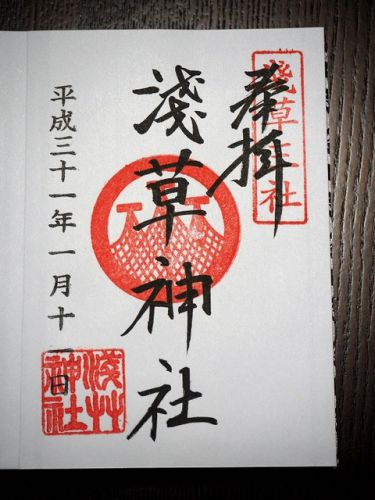 奉拝
淺草三社
淺草神社
平成三十一年一月十一日
淺艸神社